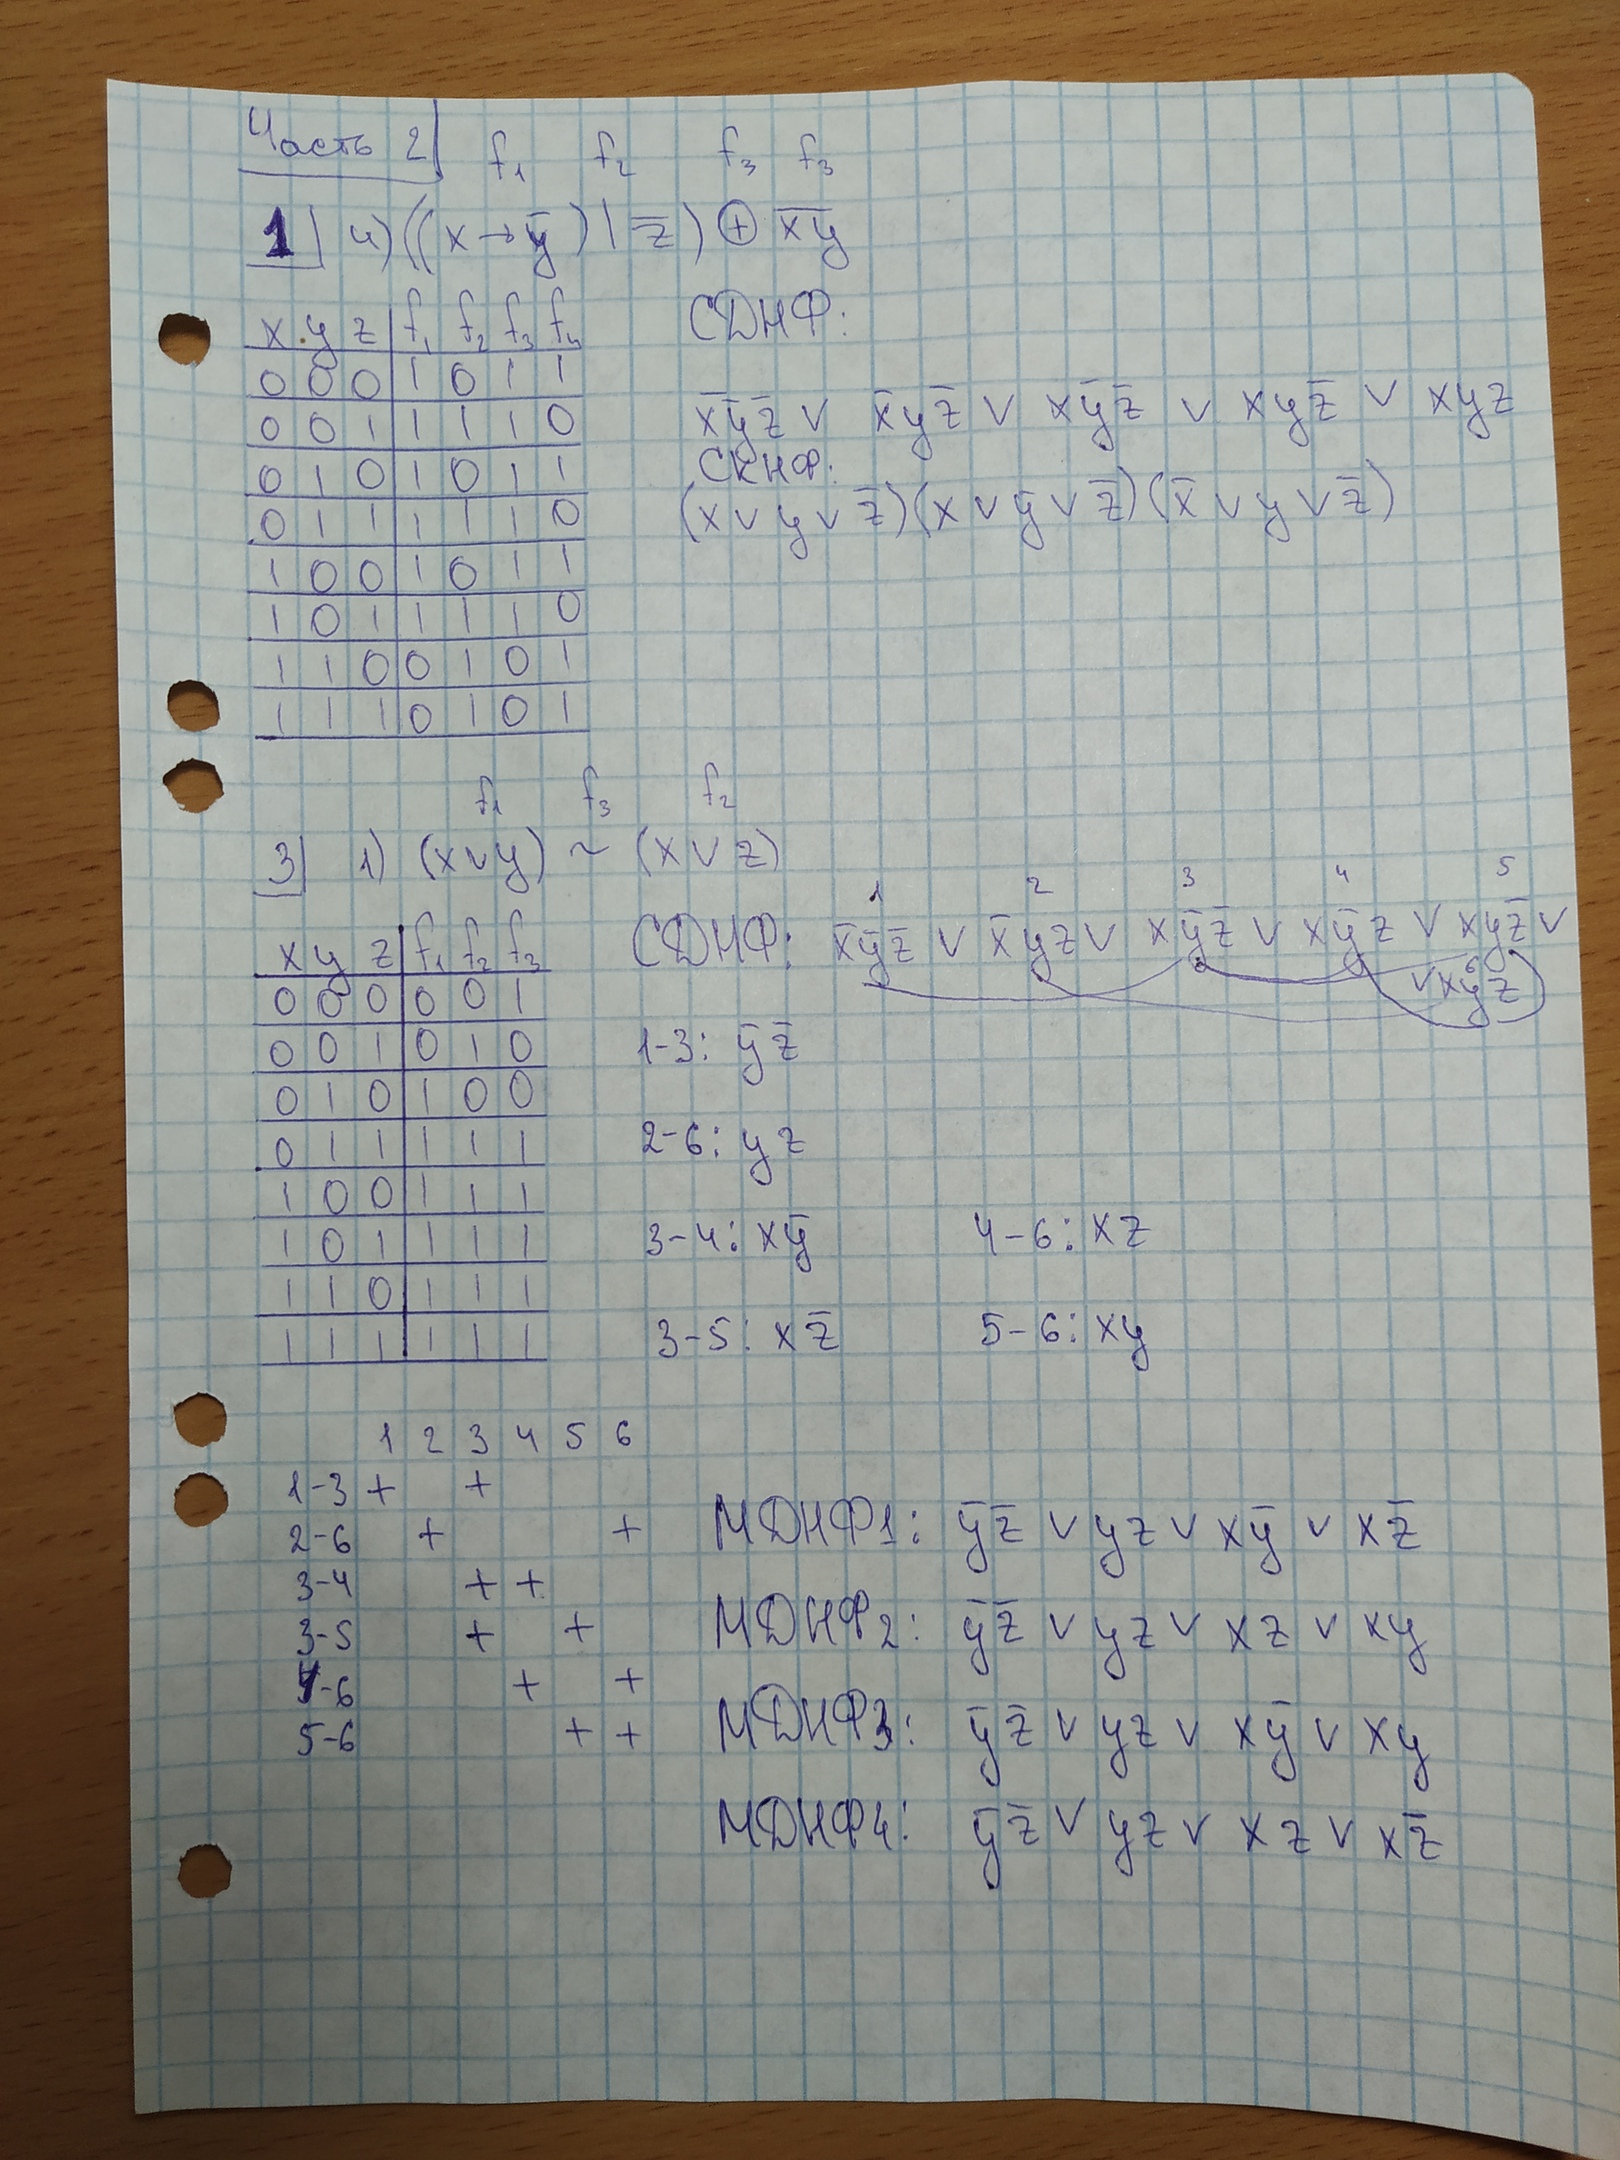 Часть 2
f₁ f₂ f₃ f₃
1 4) ((x → y̅) | z̅) ⊕ x̅y̅
x y z f₁ f₂ f₃ f₄
0 0 0 1 0 1 1
0 0 1 1 1 1 0
0 1 0 1 0 1 1
0 1 1 1 1 1 0
1 0 0 1 0 1 1
1 0 1 1 1 1 0
1 1 0 0 1 0 1
1 1 1 0 1 0 1
СДНФ:
x̅y̅z̅ ∨ x̅yz̅ ∨ xy̅z̅ ∨ xyz̅ ∨ xyz
СКНФ:
(x ∨ y ∨ z̅)(x ∨ y̅ ∨ z̅)(x̅ ∨ y ∨ z̅)
f₁ f₃ f₂
3 1) (x∨y) ~ (x∨z)
x y z f₁ f₂ f₃
0 0 0 0 0 1
0 0 1 0 1 0
0 1 0 1 0 0
0 1 1 1 1 1
1 0 0 1 1 1
1 0 1 1 1 1
1 1 0 1 1 1
1 1 1 1 1 1
1 2 3 4 5
СДНФ: x̅y̅z̅ ∨ x̅yz ∨ xy̅z̅ ∨ xy̅z ∨ xyz̅ ∨
6
∨xyz
1-3: y̅z̅
2-6: yz
3-4: xy̅ 4-6: xz
3-5: xz̅ 5-6: xy
1 2 3 4 5 6
1-3 + +
2-6 + +
3-4 + +
3-5 + +
4-6 + +
5-6 + +
МДНФ1: y̅z̅ ∨ yz ∨ xy̅ ∨ xz̅
МДНФ2: y̅z̅ ∨ yz ∨ xz ∨ xy
МДНФ3: y̅z̅ ∨ yz ∨ xy̅ ∨ xy
МДНФ4: y̅z̅ ∨ yz ∨ xz ∨ xz̅